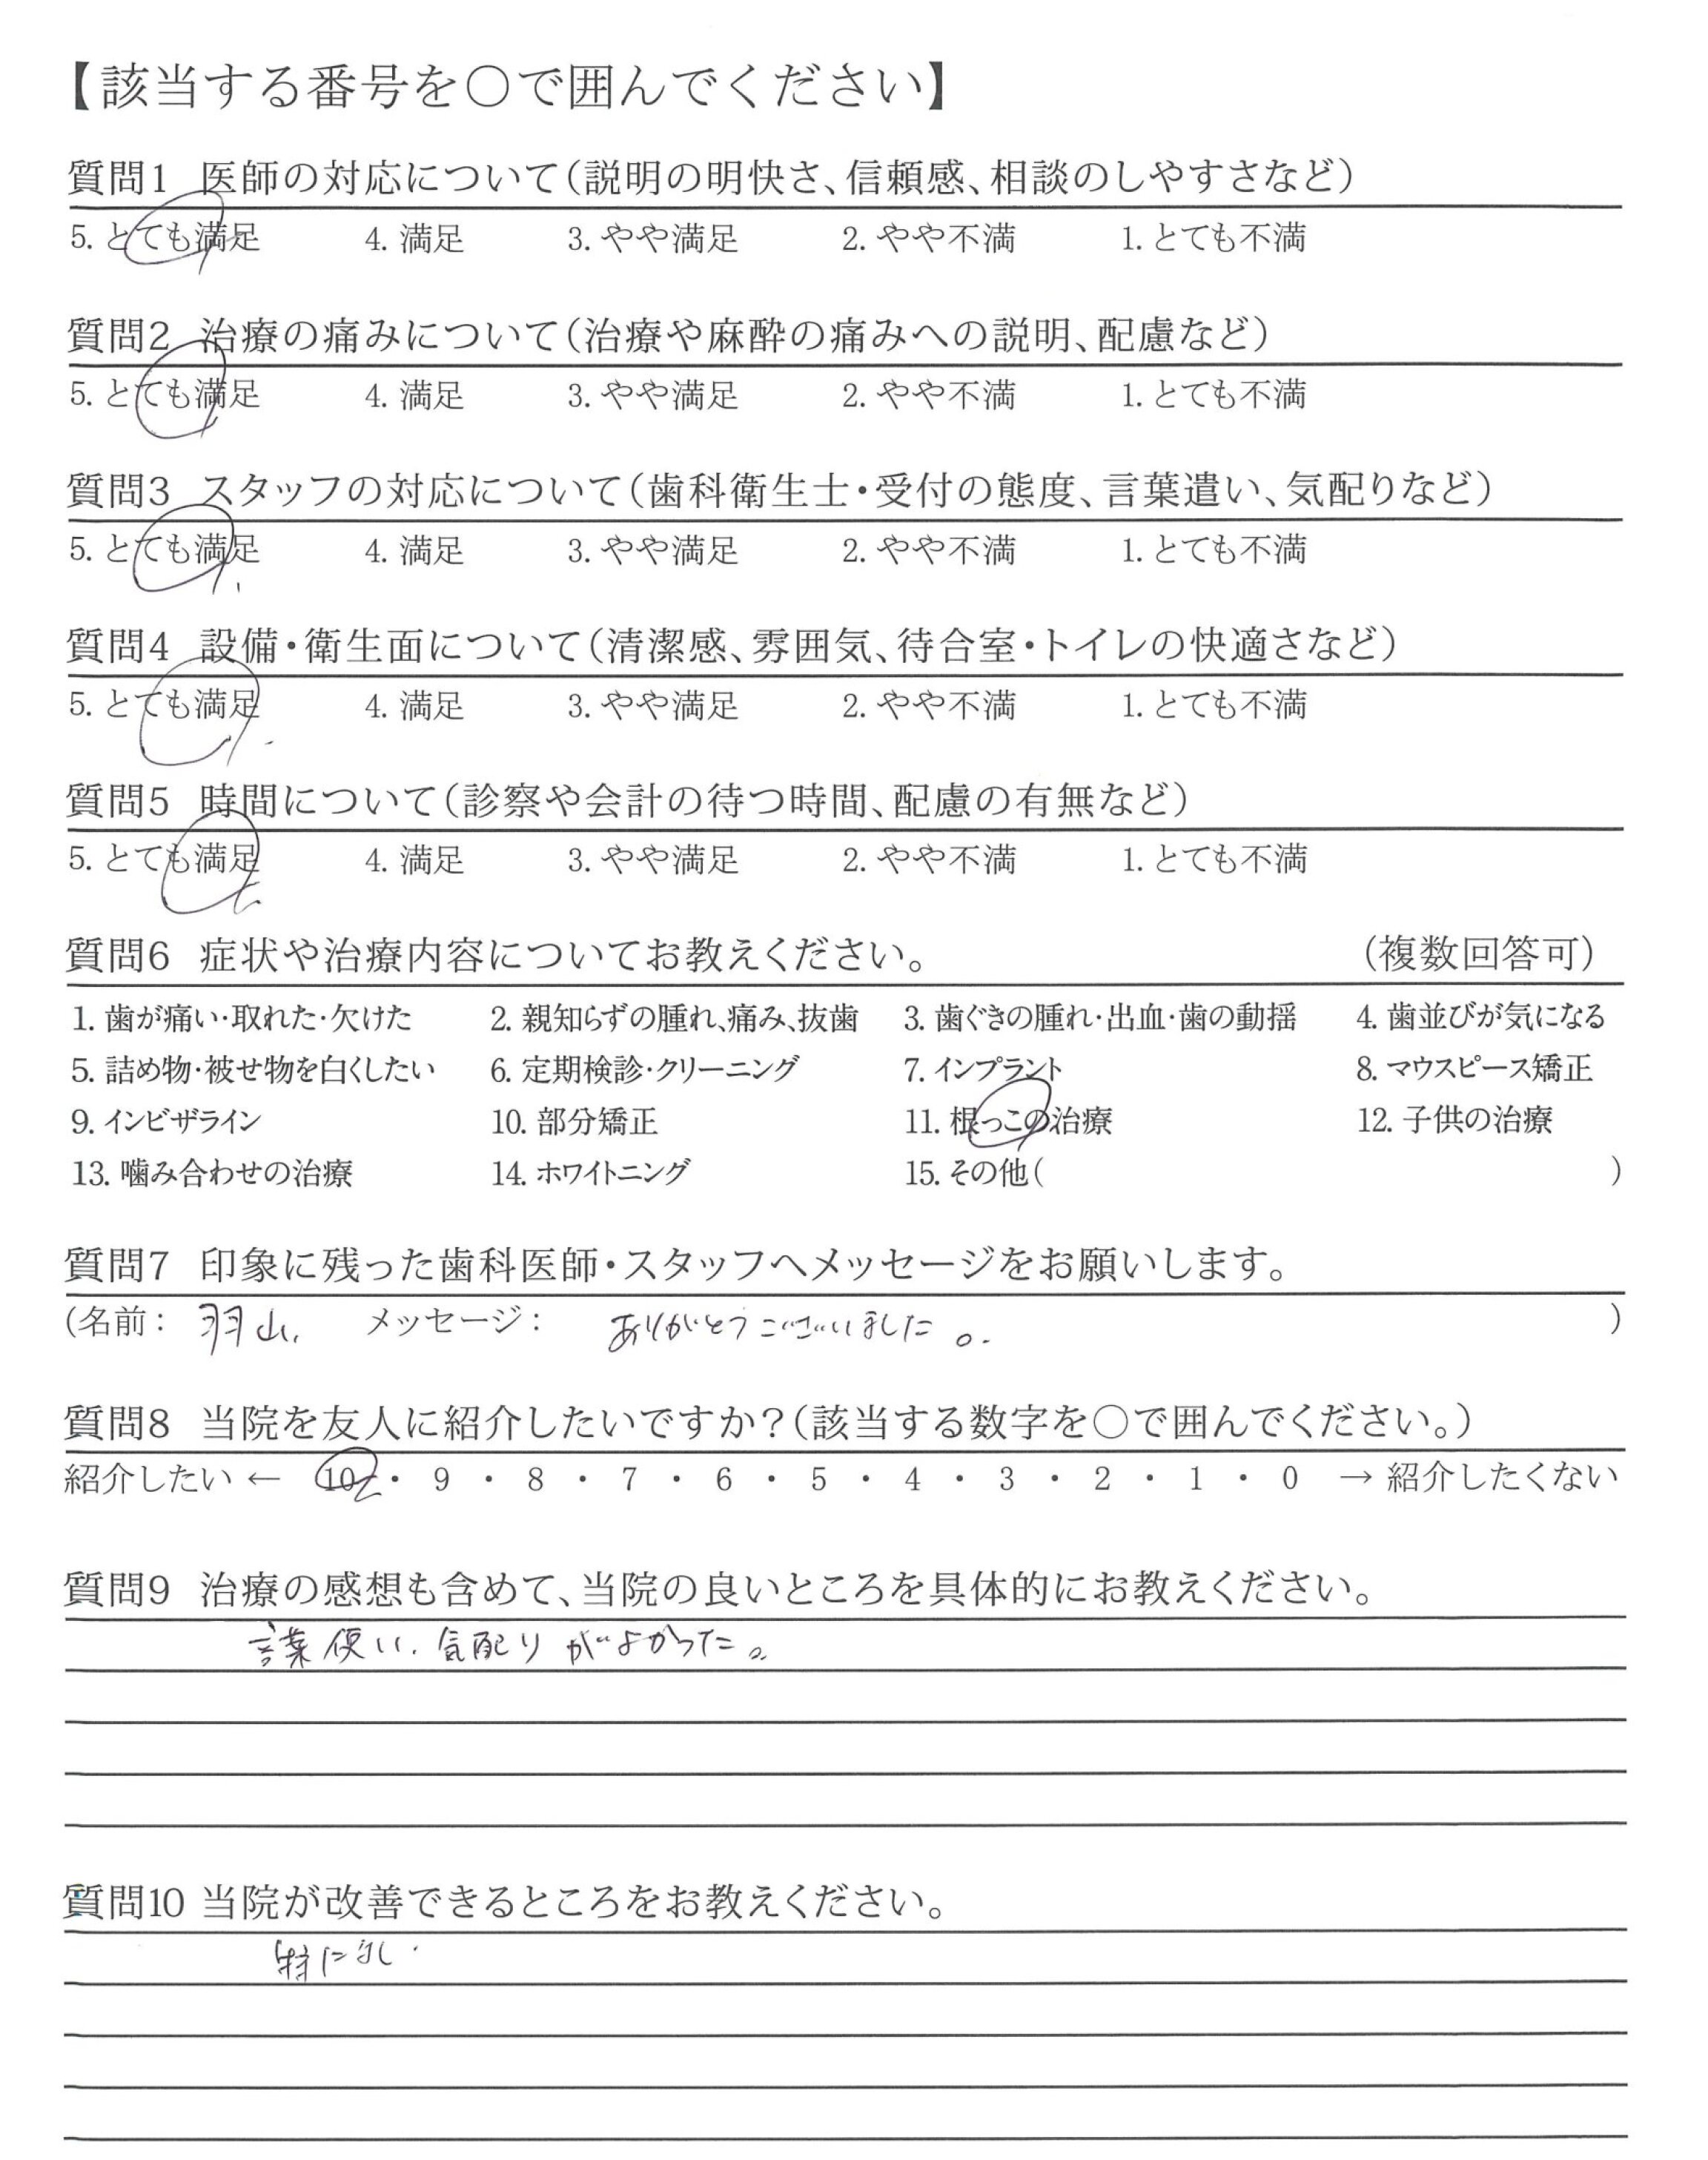 【該当する番号を○で囲んでください】
質問1 医師の対応について（説明の明快さ、信頼感、相談のしやすさなど）
5. とても満足 4. 満足 3. やや満足 2. やや不満 1. とても不満
質問2 治療の痛みについて（治療や麻酔の痛みへの説明、配慮など）
5. とても満足 4. 満足 3. やや満足 2. やや不満 1. とても不満
質問3 スタッフの対応について（歯科衛生士・受付の態度、言葉遣い、気配りなど）
5. とても満足 4. 満足 3. やや満足 2. やや不満 1. とても不満
質問4 設備・衛生面について（清潔感、雰囲気、待合室・トイレの快適さなど）
5. とても満足 4. 満足 3. やや満足 2. やや不満 1. とても不満
質問5 時間について（診察や会計の待つ時間、配慮の有無など）
5. とても満足 4. 満足 3. やや満足 2. やや不満 1. とても不満
質問6 症状や治療内容についてお教えください。 （複数回答可）
1. 歯が痛い・取れた・欠けた 2. 親知らずの腫れ、痛み、抜歯 3. 歯ぐきの腫れ・出血・歯の動揺 4. 歯並びが気になる
5. 詰め物・被せ物を白くしたい 6. 定期検診・クリーニング 7. インプラント 8. マウスピース矯正
9. インビザライン 10. 部分矯正 11. 根っこの治療 12. 子供の治療
13. 噛み合わせの治療 14. ホワイトニング 15. その他（ ）
質問7 印象に残った歯科医師・スタッフへメッセージをお願いします。
（名前： 羽山 メッセージ： ありがとうございました。 ）
質問8 当院を友人に紹介したいですか？（該当する数字を○で囲んでください。）
紹介したい ← 10 ・ 9 ・ 8 ・ 7 ・ 6 ・ 5 ・ 4 ・ 3 ・ 2 ・ 1 ・ 0 → 紹介したくない
質問9 治療の感想も含めて、当院の良いところを具体的にお教えください。
言葉使い、気配りがよかった。
質問10 当院が改善できるところをお教えください。
特になし